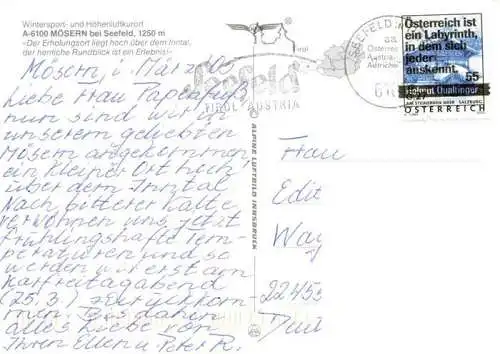 Wintersport- und Höhenluftkurort
A-6100 MÖSERN bei Seefeld, 1250 m
»Der Erholungsort liegt hoch über dem Inntal,
der herrliche Rundblick ist ein Erlebnis«
Mösern, i. März 05
Liebe Frau Papenfuß
nun sind wir in
unserem geliebten
Mösern angekommen
ein kleiner Ort hoch
über dem Inntal
Nach bitterer Kälte
verwöhnen uns jetzt
frühlingshafte Tem-
peraturen und so
werden wir erst am
Karfreitagabend
(25.3.) zurückkom-
men. Bis dahin
alles Liebe von
Ihren Ellen u Peter R.
Seefeld
TIROL AUSTRIA
ALPINE LUFTBILD INNSBRUCK
SEEFELD
Österreich ist
ein Labyrinth,
in dem sich
jeder
auskennt.
55
Helmut Qualtinger
AM STEINBERG ÜBER SALZBURG
ÖSTERREICH
Frau
Edit
Way
22455